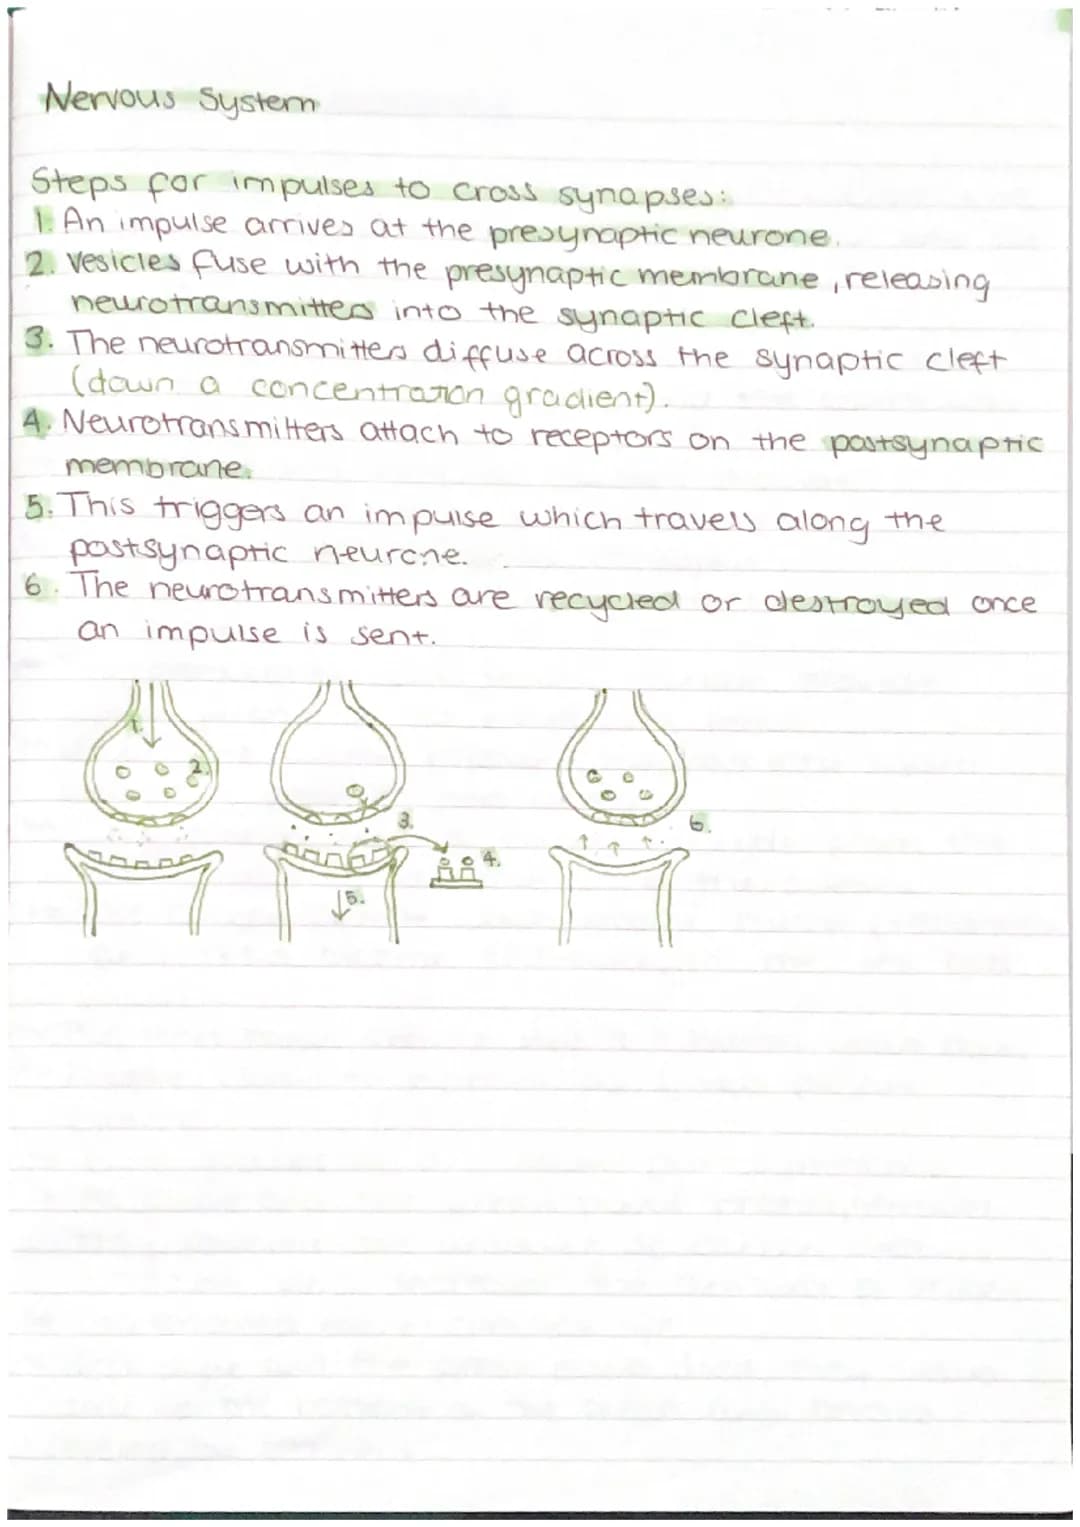 Nervous System
Steps for impulses to cross synapses:
1. An impulse arrives at the presynaptic neurone.
2. Vesicles fuse with the presynaptic membrane, releasing
neurotransmitters into the synaptic cleft.
3. The neurotransmitters diffuse across the synaptic cleft
(down a concentration gradient).
4. Neurotransmitters attach to receptors on the postsynaptic
membrane.
5. This triggers an impulse which travels along the
postsynaptic neurone.
6. The neurotransmitters are recycled or destroyed once
an impulse is sent.
1.
2.
3.
4.
5.
6.